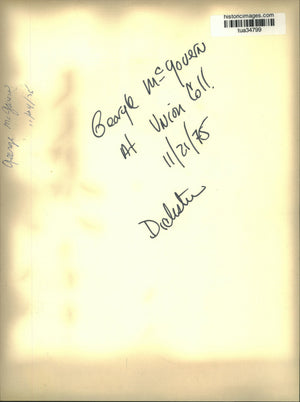 historicimages.com
tua34799
George McGovern
At Union Coll.
11/21/75
George McGovern